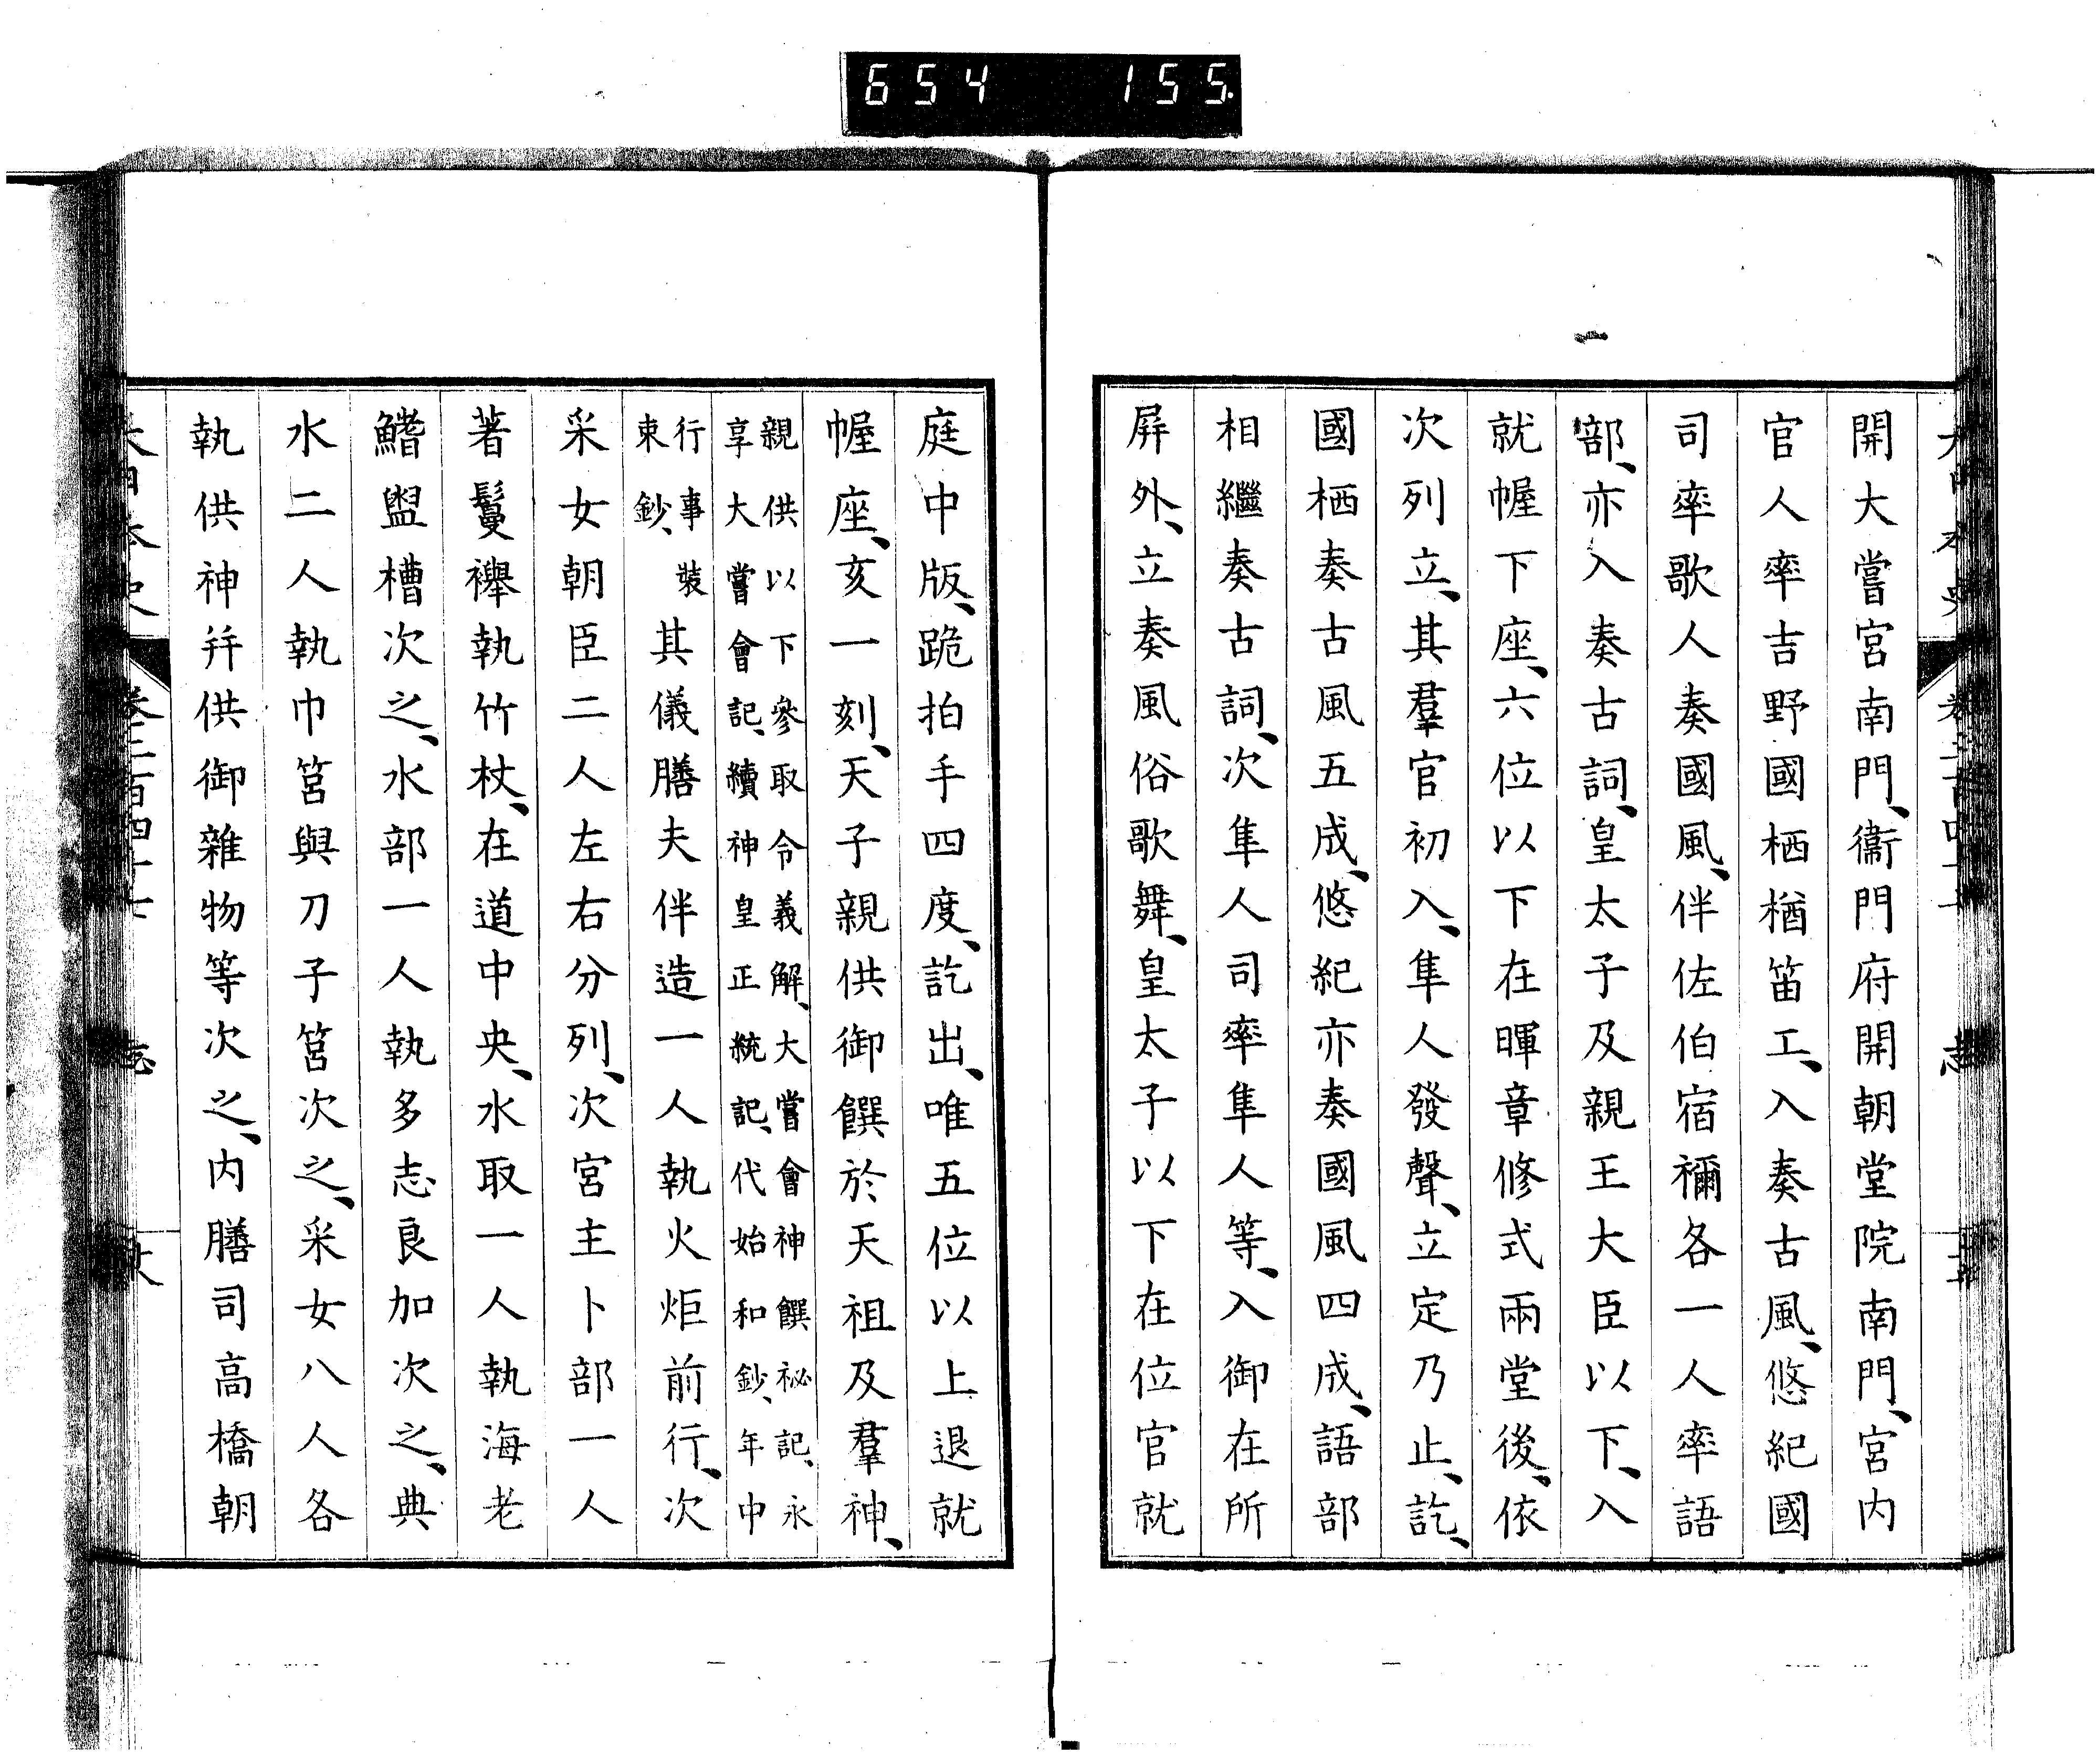 654 155
開大嘗宮南門、衞門府開朝堂院南門、宮内
官人率吉野國栖楢笛工、入奏古風、悠紀國
司率歌人奏國風、伴佐伯宿禰各一人率語
部、亦入奏古詞、皇太子及親王大臣以下、入
就幄下座、六位以下在暉章修式兩堂後、依
次列立、其羣官初入、隼人發聲、立定乃止、訖、
國栖奏古風五成、悠紀亦奏國風四成、語部
相繼奏古詞、次隼人司率隼人等、入御在所
屛外、立奏風俗歌舞、皇太子以下在位官就
庭中版、跪拍手四度、訖出、唯五位以上退就
幄座、亥一刻、天子親供御饌於天祖及羣神、
親供以下參取令義解、大嘗會神饌祕記、永
享大嘗會記、續神皇正統記、代始和鈔、年中
行事裝
束鈔、
其儀膳夫伴造一人執火炬前行、次
采女朝臣二人左右分列、次宮主卜部一人
著鬘襷執竹杖、在道中央、水取一人執海老
鰭盥槽次之、水部一人執多志良加次之、典
水二人執巾筥與刀子筥次之、采女八人各
執供神幷供御雜物等次之、内膳司高橋朝
大日本史
卷二百四十七
志